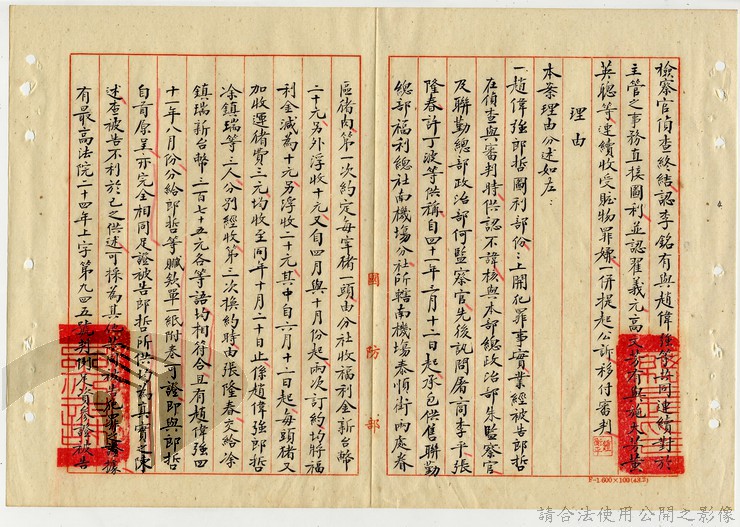 檢察官偵查終結認李銘有與趙偉強等共同連續對於
主管之事務直接圖利並認翟義元高文芳有與施天黃
英聰等連續收受賍物罪嫌一併提起公訴移付審判
理由
本案理由分述如左：
一趙偉強郎哲圖利部份：上開犯罪事實業經被告郎哲
在偵查與審判時供認不諱核與本部總政治部朱監察官
及聯勤總部政治部何監察官先後訊問屠商李平張
隆春許丁波等供稱自四十一年三月十二日起承包供售聯勤
總部福利總社南機場分社所轄南機場泰順街兩處眷
國防部
區豬肉第一次約定每宰豬一頭由分社收福利金新台幣
二十元另外浮收十元又自四月與十月份起兩次訂約均將福
利金減為十元另浮收二十元其中自六月十二日起每頭豬又
加收運豬費三元均收至同年十月二十日止係趙偉強郎哲
涂鎮瑞等三人分別經收第三次換約時由張隆春交給涂
鎮瑞新台幣二百七十五元各等語均相符合且有趙偉強四
十一年八月份分給郎哲等贓款單一紙附卷可證即與郎哲
自首原呈亦完全相同足證被告郎哲所供均為真實之陳
述查被告不利於己之供述可採為其
有最高法院二十四年上字第九四五號判例
被告
F-1 600×100(43.7)
請合法使用公開之影像